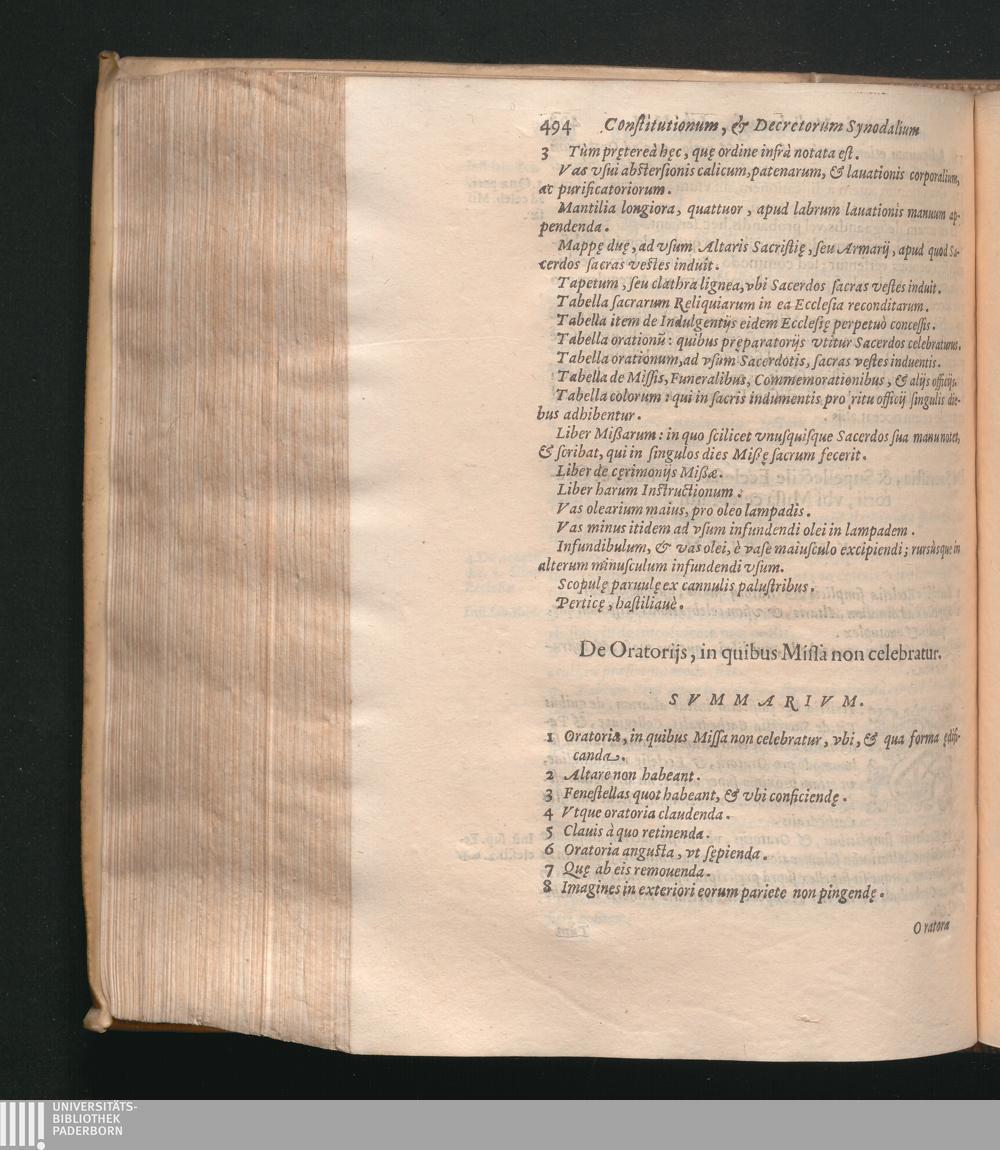 494 Conſtitutionum, & Decretorum Synodalium
3 Tùm pręterea hęc, quę ordine infrà notata eſt.
Vas vſui abſterſionis calicum, patenarum, & lauationis corporalium,
ac purificatoriorum.
Mantilia longiora, quattuor, apud labrum lauationis manuum ap-
pendenda.
Mappę duę, ad vſum Altaris Sacriſtię, ſeu Armarij, apud quod Sa-
cerdos ſacras veſtes induit.
Tapetum, ſeu clathra lignea, vbi Sacerdos ſacras veſtes induit.
Tabella ſacrarum Reliquiarum in ea Eccleſia reconditarum.
Tabella item de Indulgentijs eidem Eccleſię perpetuò conceſſis.
Tabella orationũ: quibus pręparatorijs vtitur Sacerdos celebraturus.
Tabella orationum, ad vſum Sacerdotis, ſacras veſtes induentis.
Tabella de Miſſis, Funeralibus, Commemorationibus, & alijs officijs.
Tabella colorum: qui in ſacris indumentis pro ritu officij ſingulis die-
bus adhibentur.
Liber Mißarum: in quo ſcilicet vnuſquiſque Sacerdos ſua manu notet,
& ſcribat, qui in ſingulos dies Mißę ſacrum fecerit.
Liber de cęrimonijs Mißæ.
Liber harum Inſtructionum.
Vas olearium maius, pro oleo lampadis.
Vas minus itidem ad vſum infundendi olei in lampadem.
Infundibulum, & vas olei, è vaſe maiuſculo excipiendi; rurſùsque in
alterum minuſculum infundendi vſum.
Scopulę paruulę ex cannulis paluſtribus.
Perticę, haſtiliauè.
De Oratorijs, in quibus Miſſa non celebratur.
SVMMARIVM.
1 Oratoria, in quibus Miſſa non celebratur, vbi, & qua forma ędifi-
canda.
2 Altare non habeant.
3 Feneſtellas quot habeant, & vbi conficiendę.
4 Vtque oratoria claudenda.
5 Clauis à quo retinenda.
6 Oratoria anguſta, vt ſępienda.
7 Quę ab eis remouenda.
8 Imagines in exteriori eorum pariete non pingendę.
Oratora
UNIVERSITÄTS-
BIBLIOTHEK
PADERBORN